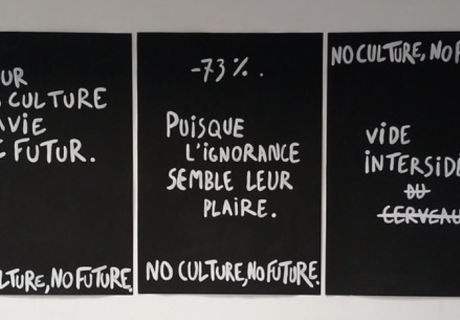 UR
CULTURE
VIE
FUTUR.
LTURE, NO FUTURE.
-73%.
PUISQUE
L'IGNORANCE
SEMBLE LEUR
PLAIRE.
NO CULTURE, NO FUTURE.
NO CULTURE, NO F
VIDE
INTERSIDÉ
DU
CERVEAU